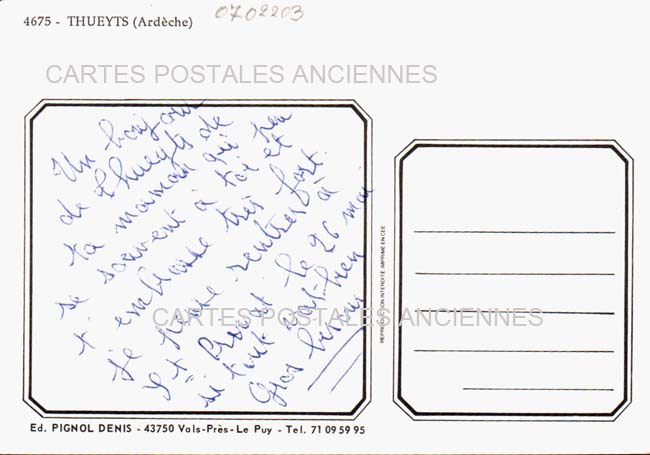 4675 - THUEYTS (Ardèche)
0702203
CARTES POSTALES ANCIENNES
Un bonjour
de Thueyts de
ta maman qui
se souvient à toi et
t'embrasse très fort.
Je pense rentrer à
St le 26 mai
si tout va bien
Gros bisous
CARTES POSTALES ANCIENNES
REPRODUCTION INTERDITE IMPRIMÉ EN CEE
Ed. PIGNOL DENIS - 43750 Vals-Près-Le Puy - Tel. 71 09 59 95